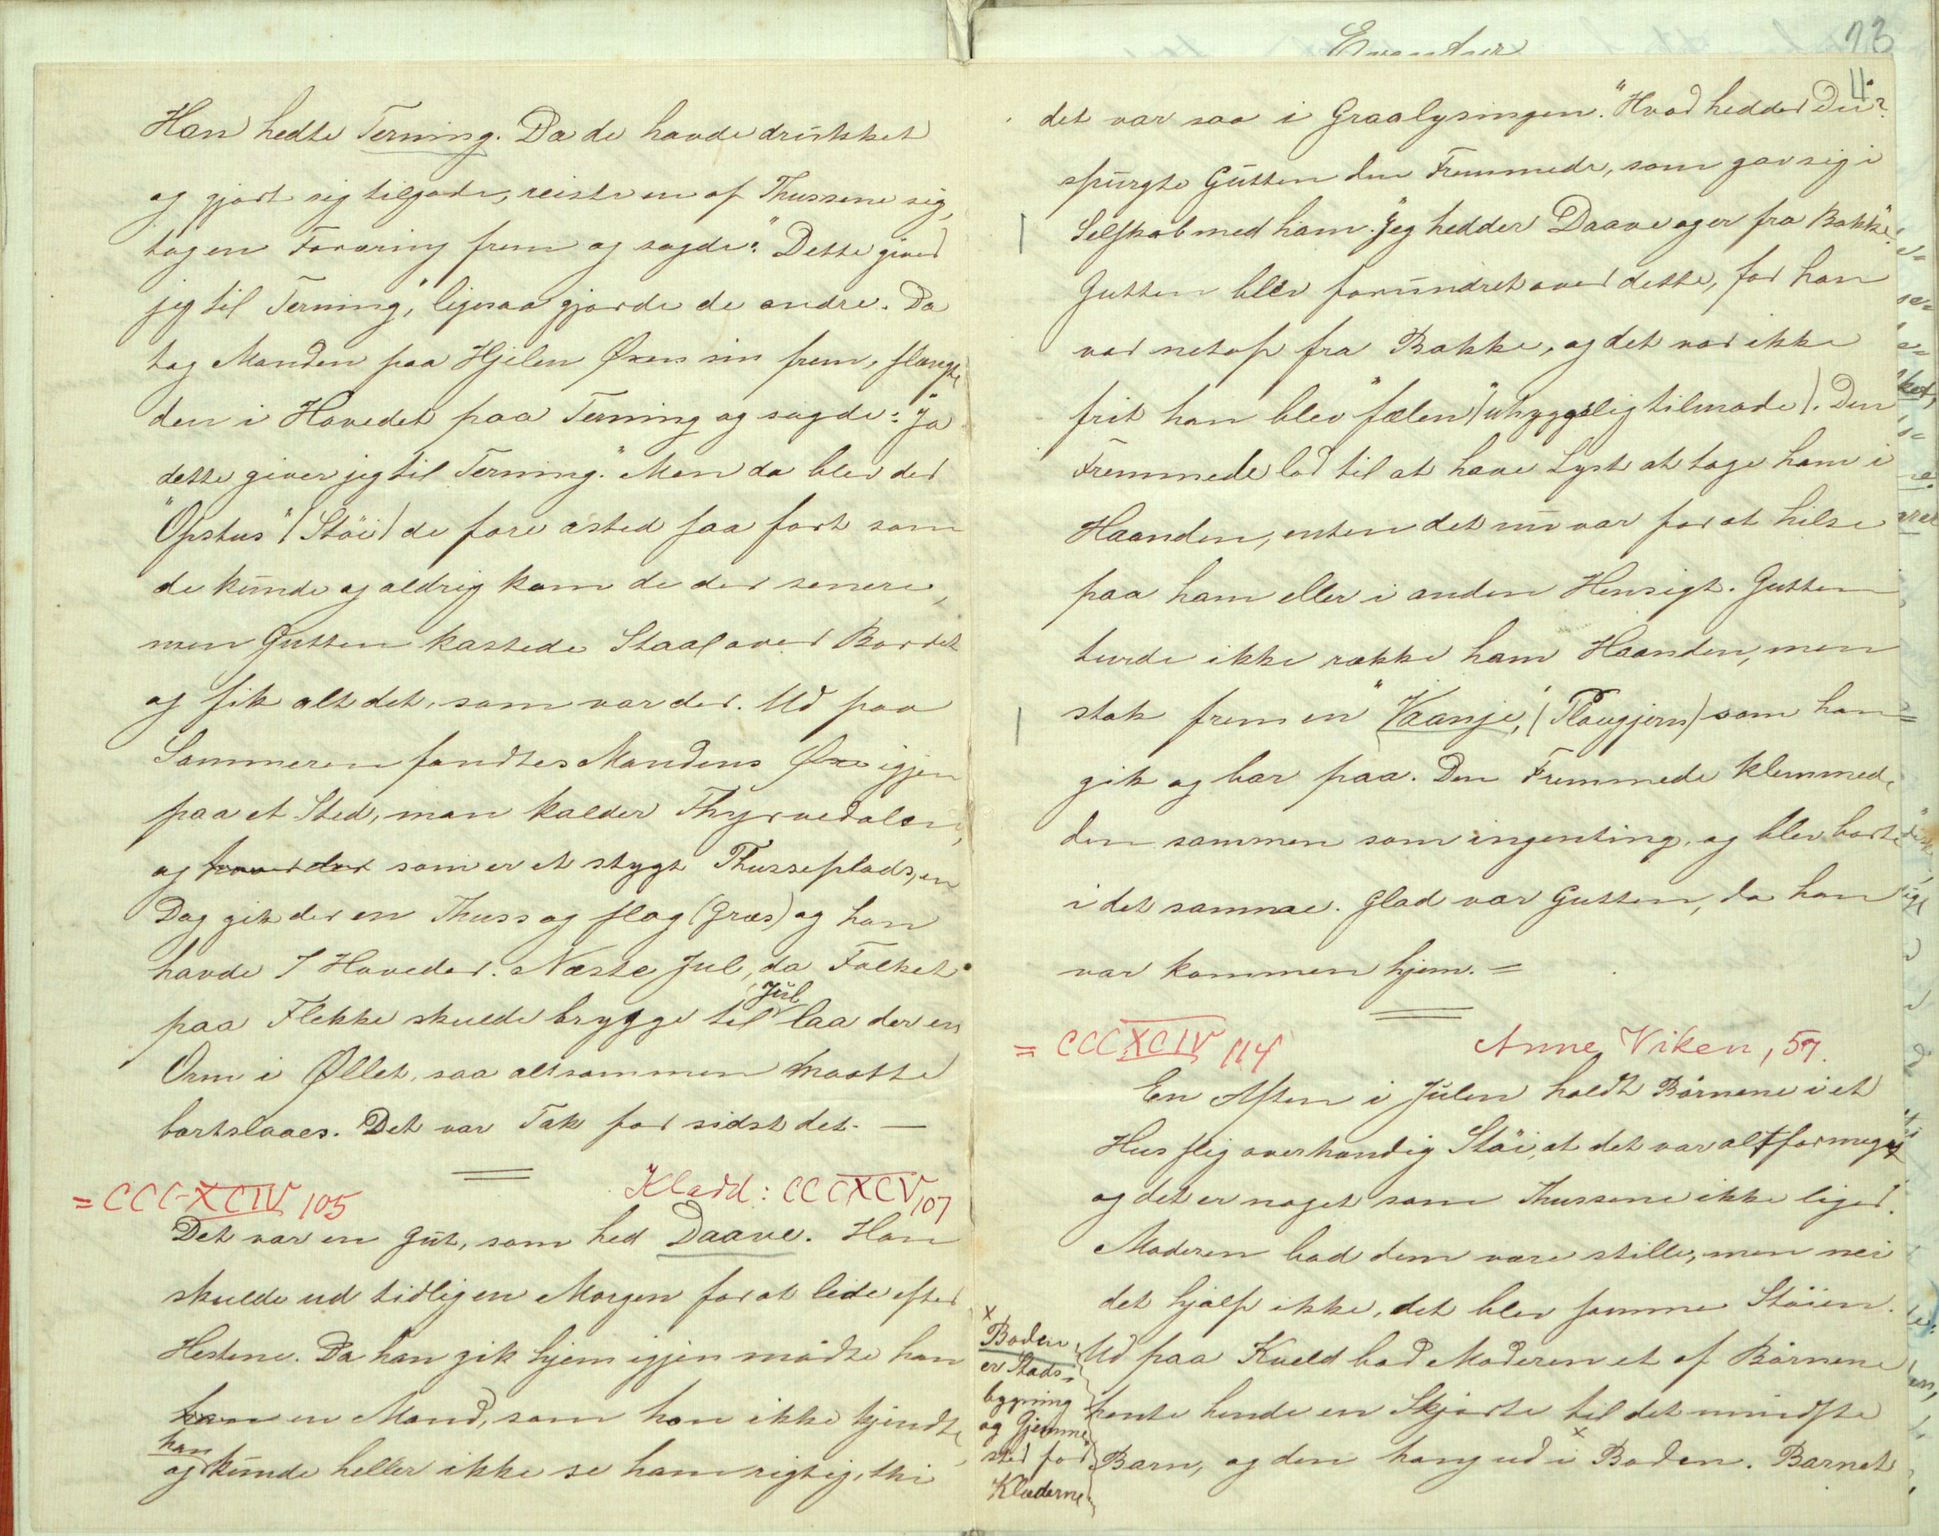 Han hedte Terning. Da de havde drukket
og gjort sig tilgode, reiste en af Thussene sig,
tog en Foræring frem og sagde: "Dette giver
jeg til Terning", ligesaa gjorde de andre. Da
tog Manden paa Hjelen Øxen sin frem, slængte
den i Hovedet paa Terning og sagde: "Ja
dette giver jeg til Terning." Men da blev der
"Opstus" (Støi) de fore asted saa fort som
de kunde og aldrig kom de der senere,
men Gutten kastede Staal over Bordet
og fik alt det, som var der. Ud paa
Sommeren fandtes Mandens Øxe igjen
paa et Sted, man kalder Thyrvedalen,
og som er et stygt Thusseplads, en
Dag gik der en Thuss og slog (Græs) og han
havde 7 Hoveder. Næste Jul, da Folket
paa Flekke skulde brygge til Jul laa der en
Orm i Øllet, saa altsammen maatte
bortslaaes. Det var Tak for sidst det. —
= CCCXCIV 105 Kladd: CCCXCV 107
Det var en Gut, som hed Daave. Han
skulde ud tidlig en Morgen for at lede efter
Hestene. Da han gik hjem igjen mødte han
en Mand, som han ikke kjendte,
og han kunde heller ikke se ham rigtig, thi
23
11
det var saa i Graalysingen. "Hvad hedder Du"?
spurgte Gutten den Fremmede, som gav sig i
Selskab med ham. "Jeg hedder Daave og er fra Bakke".
Gutten blev forundret over dette, for han
var netop fra Bakke, og det var ikke
frit han blev "fælen" (uhyggelig tilmode). Den
Fremmede lod til at have Lyst at tage ham i
Haanden, enten det nu var for at hilse
paa ham eller i anden Hensigt. Gutten
turde ikke række ham Haanden, men
stak frem en "Vaanje", (Plougjern) som han
gik og bar paa. Den Fremmede klemmed
den sammen som ingenting, og blev borte
i det samme. Glad var Gutten, da han
var kommen hjem. =
= CCCXCIV 114 Anne Viken, 57.
En Aften i Julen holdt Børnene i et
Hus slig overhændig Støi, at det var altfor meget
og det er noget som Thussene ikke liger.
Moderen bad dem være stille, men nei
det hjalp ikke, det blev samme Støien.
Ud paa Kveld bad Moderen et af Børnene
hente hende en Skjorte til det mindste
Barn, og den hang ud i x Boden. Barnet
x Boden
er Stads-
bygning
og Gjemme
sted for
Klæderne